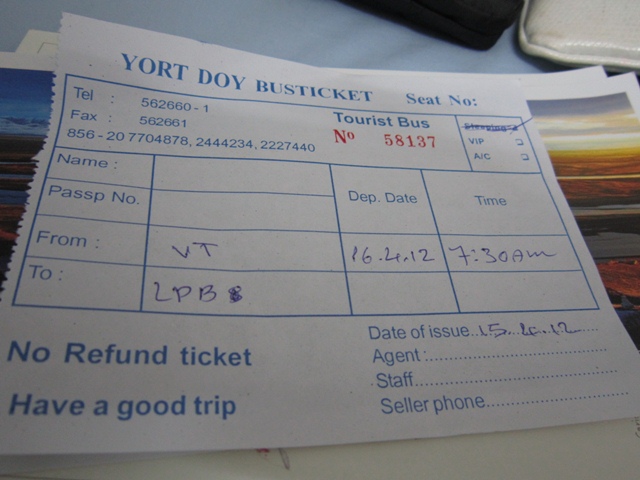 YORT DOY BUSTICKET Seat No:
Tel : 562660 - 1
Fax : 562661
856 - 20 7704878, 2444234, 2227440
Tourist Bus
Nº 58137
Sleeping
VIP
A/C
Name :
Passp No.
Dep. Date
Time
From : VT 16.4.12 7:30AM
To : LPB
Date of issue..15..4..12.....
No Refund ticket
Agent:
Staff
Have a good trip
Seller phone